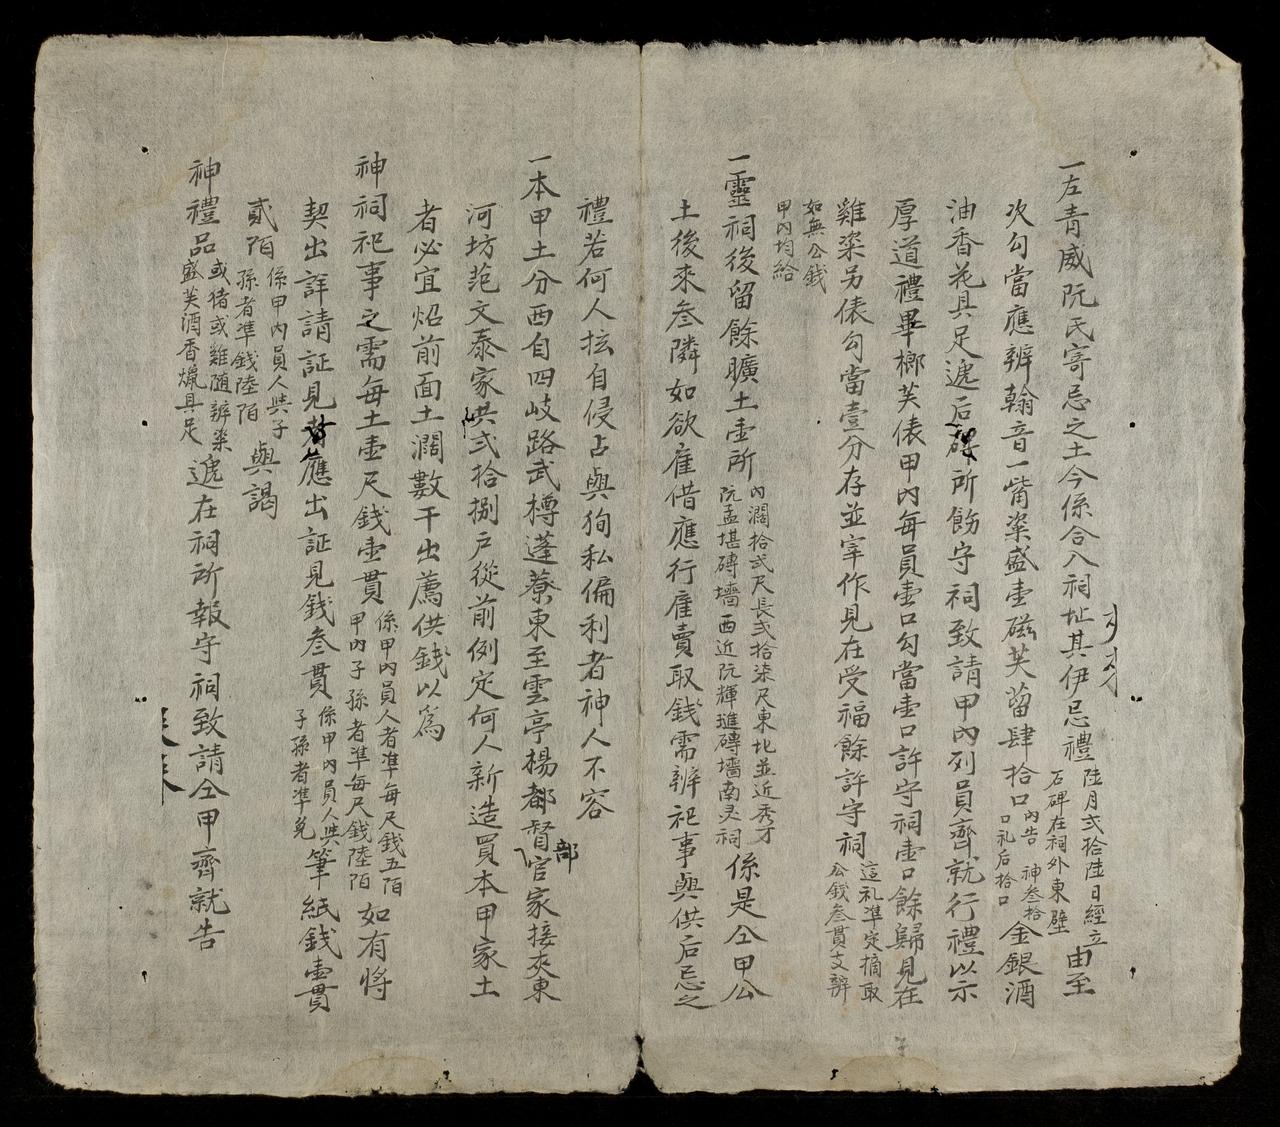 一左青威阮氏寄忌之土今係合入祠址其伊忌禮陸月弍拾陸日經立石碑在祠外東壁由至
次勾當應辨翰音一觜粢盛壹磁芙畱肆拾口內告神叁拾口礼后拾口金銀酒
油香花具足遞后碑所飭守祠致請甲內列員齊就行禮以示
厚道禮畢榔芙俵甲內每員壹口勾當壹口許守祠壹口餘歸見在
雞粢另俵勾當壹分存並宰作見在受福餘許守祠這礼準定摘取公錢叁貫支辨
如無公錢甲內均給
一靈祠後留餘曠土壹所內濶拾弍尺長弍拾柒尺東北並近秀才阮孟堪磚墻西近阮輝璡磚墻南灵祠係是仝甲公
土後來叁隣如欲雇借應行雇賣取錢需辨祀事與供后忌之
禮若何人抂自侵占與狥私偏利者神人不容
一本甲土分西自四岐路武樽蓬藔東至雲亭楊都督部官家接夾東
河坊范文泰家共弍拾捌戶從前例定何人新造買本甲家土
者必宜炤前面土濶數干出薦供錢以爲
神祠祀事之需每土壹尺錢壹貫係甲內員人者準每尺錢五陌甲內子孫者準每尺錢陸陌如有將
契出詳請証見者應出証見錢叁貫係甲內員人與子孫者準免筆紙錢壹貫
貳陌係甲內員人與子孫者準錢陸陌與謁
神禮品或猪或雞隨辨粢盛芙酒香爉具足遞在祠所報守祠致請仝甲齊就告